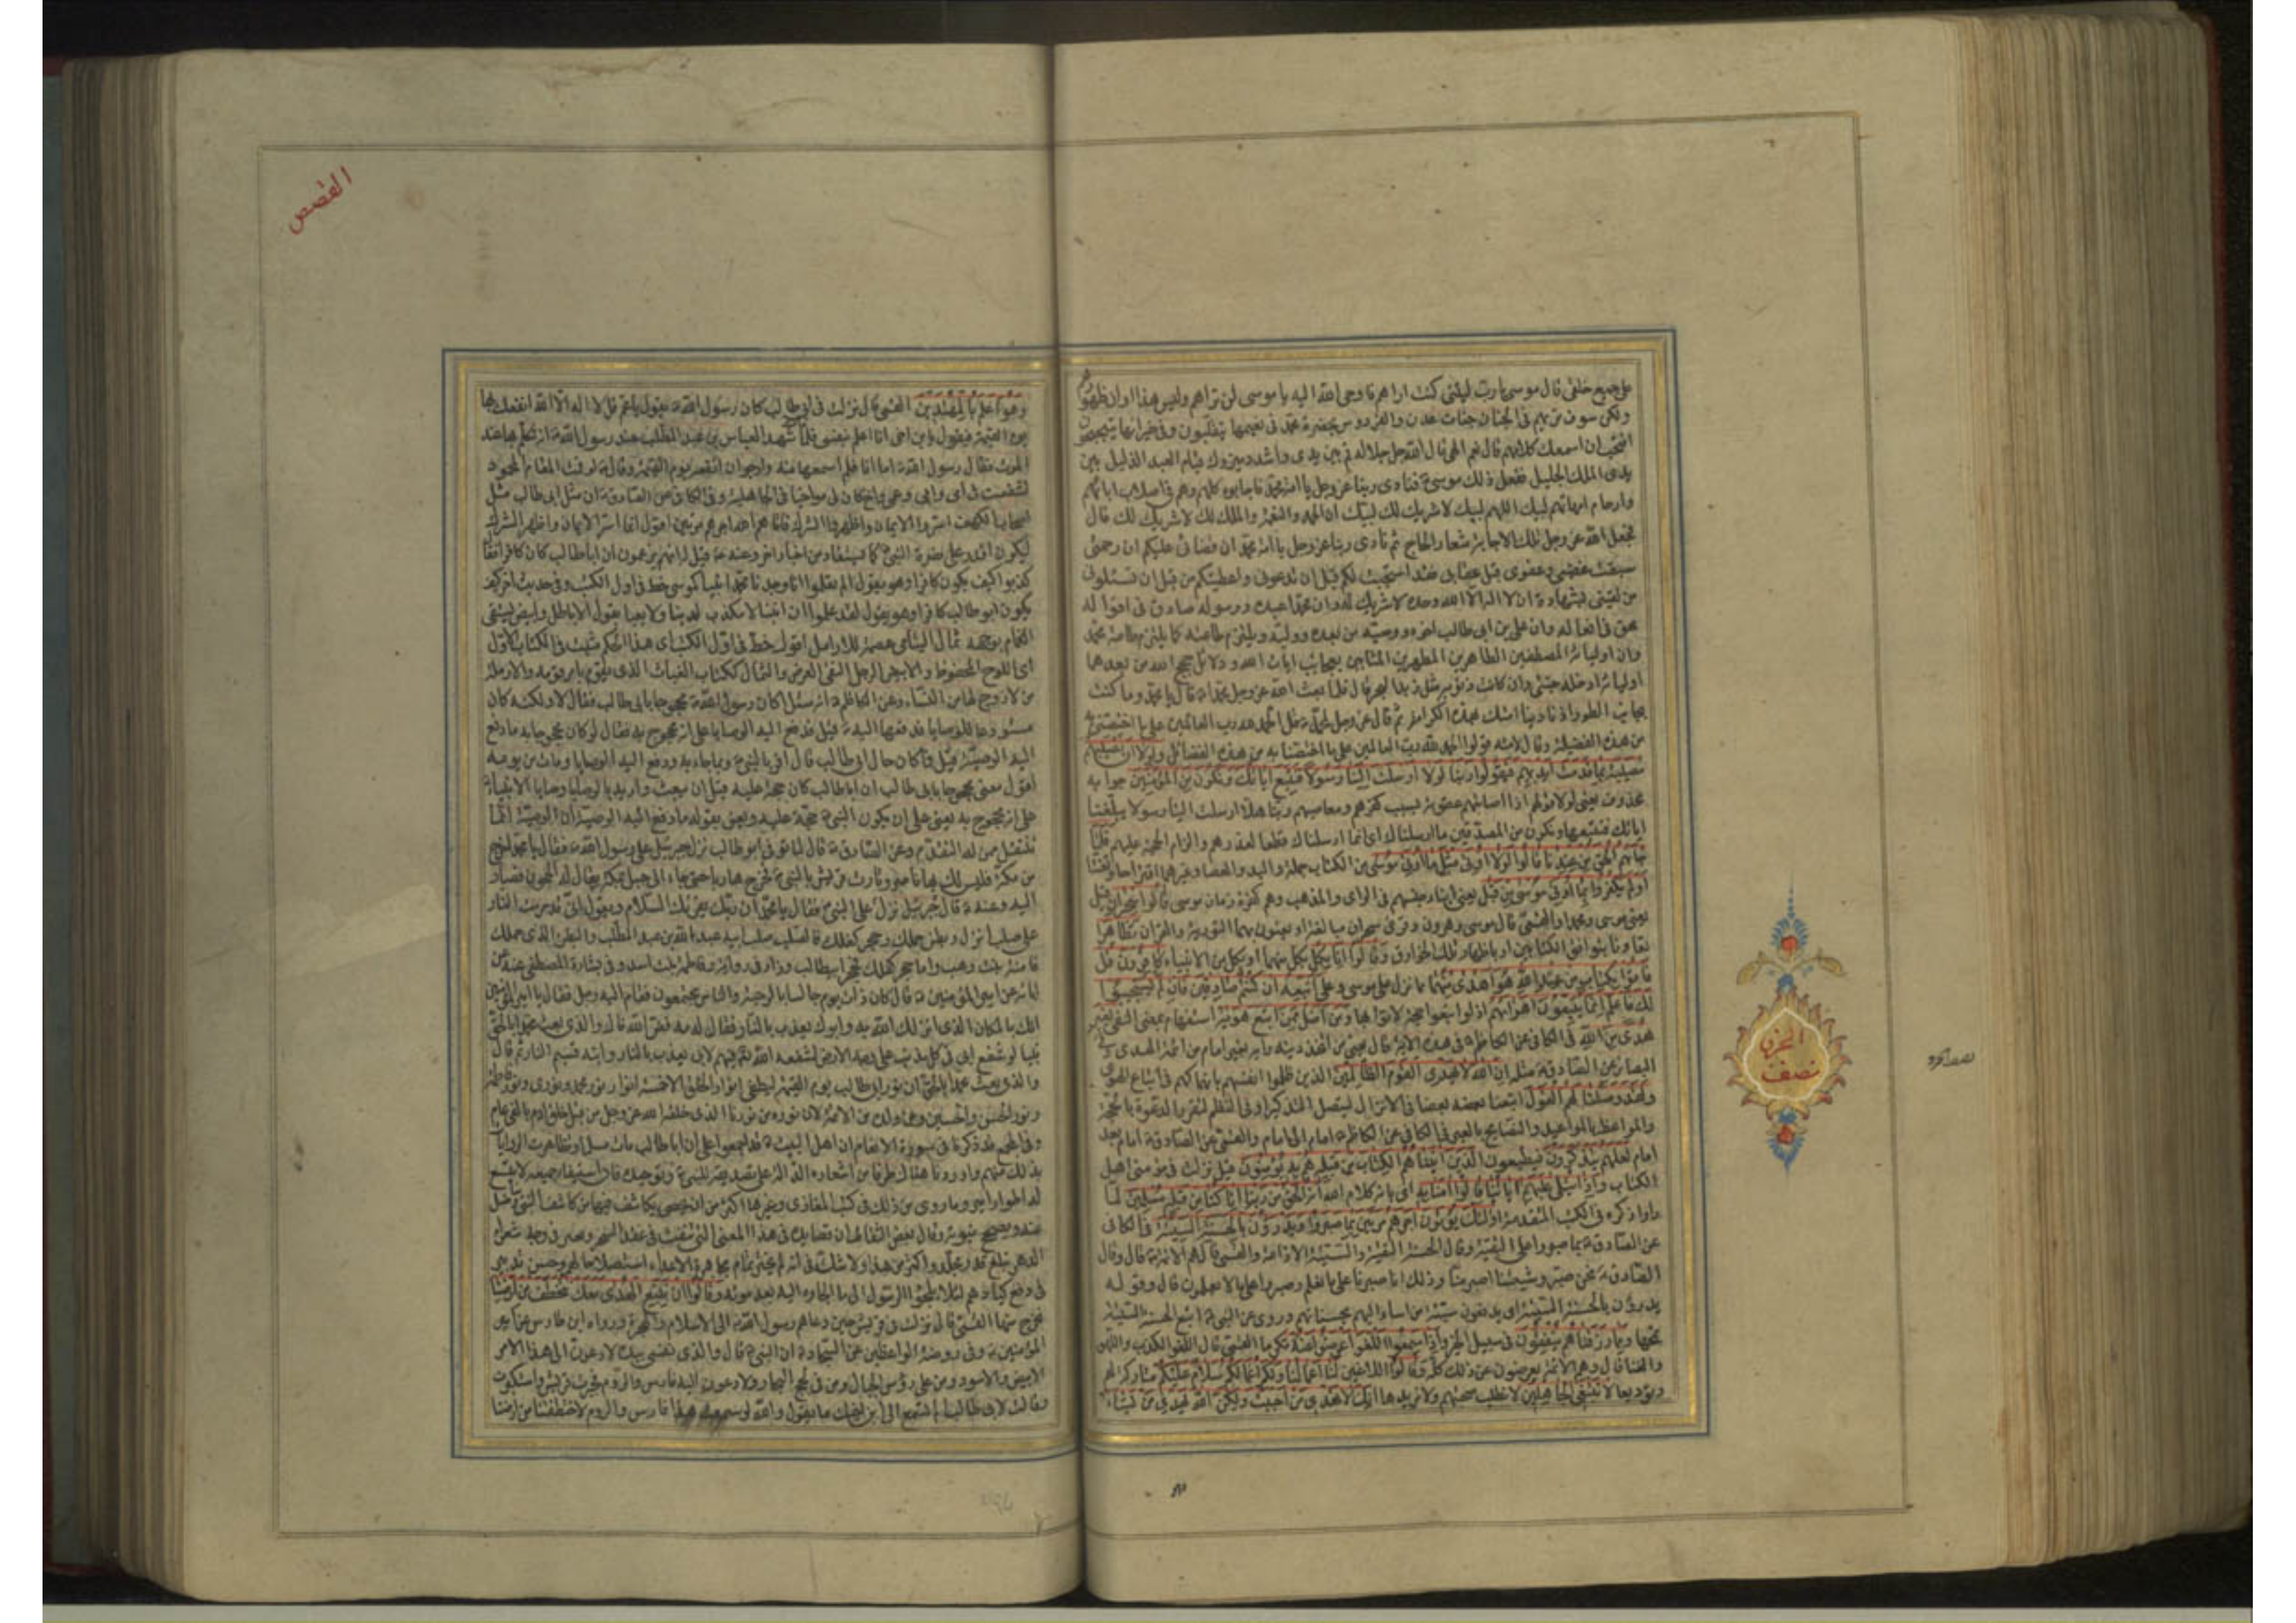 على جميع خلقي قال موسى يا رب ليتني كنت اراهم فاوحى الله اليه يا موسى لن تراهم وليس هذا اوان ظهورهم
ولكن سوف تريهم في الجنان جنات عدن والفردوس بحضرة محمد في نعيمها يتقلبون وفي خيراتها يتبجحون
افتحب ان اسمعك كلامهم قال نعم الهي قال الله جل جلاله قم بين يدي واشدد ميزرك قيام العبد الذليل بين
يدي الملك الجليل ففعل ذلك موسى فنادى ربنا عز وجل يا امة محمد فاجابوه كلهم وهم في اصلاب ابائهم
وارحام امهاتهم لبيك اللهم لبيك لا شريك لك لبيك ان الحمد والنعمة والملك لك لا شريك لك قال
فجعل الله عز وجل تلك الاجابة شعار الحاج ثم نادى ربنا عز وجل يا امة محمد ان قضائي عليكم ان رحمتي
سبقت غضبي وعفوي قبل عقابي فقد استجبت لكم قبل ان تدعوني واعطيتكم من قبل ان تسئلوني
من لقيني بشهادة ان لا اله الا الله وحده لا شريك له وان محمدا عبده ورسوله صادق في اقواله
محق في افعاله وان علي بن ابي طالب اخوه ووصيه من بعده ووليه ويلتزم طاعته كما يلتزم طاعة محمد
وان اوليائه المصطفين الطاهرين المطهرين بعجايب ايات الله ودلائل حجج الله من بعدهما
اوليائه ادخله جنتي وان كانت ذنوبه مثل زبد البحر قال فلما بعث الله عز وجل محمدا قال يا محمد وما كنت
بجانب الطور اذ نادينا امتك بهذه الكرامة ثم قال عز وجل لمحمد قل الحمد لله رب العالمين على ما اختصني به
من هذه الفضيلة وقال لامته قولوا الحمد لله رب العالمين على ما اختصنا به من هذه الفضائل ولولا ان تصيبهم
مصيبة بما قدمت ايديهم فيقولوا ربنا لولا ارسلت الينا رسولا فنتبع اياتك ونكون من المؤمنين جوابه
محذوف يعني لولا قولهم اذا اصابتهم عقوبة بسبب كفرهم ومعاصيهم ربنا هلا ارسلت الينا رسولا يبلغنا
اياتك فنتبعها ونكون من المصدقين ما ارسلناك اي انما ارسلناك قطعا لعذرهم والزام الحجة عليهم فلما
جاءهم الحق من عندنا قالوا لولا اوتي مثل ما اوتي موسى من الكتاب جملة واليد والعصا وغيرهما اقتراحا وتعنتا
اولم يكفروا بما اوتي موسى من قبل يعني ابناء جنسهم في الراي والمذهب وهم كفرة زمان موسى قالوا سحران قيل
يعني موسى ومحمدا والقمي قال موسى وهرون وقرئ سحران مبالغة او يعنون بهما التورية والقران تظاهرا
تعاونا بتوافق الكتابين او باظهار تلك الخوارق وقالوا انا بكل بكل منهما او بكل من الانبياء كافرون قل
فاتوا بكتاب من عند الله هو اهدى منهما مما نزل على موسى وعلي اتبعه ان كنتم صادقين فان لم يستجيبوا
لك فاعلم انما يتبعون اهواءهم اذ لو اتبعوا حجة لاتوا بها ومن اضل ممن اتبع هويه استفهام بمعنى النفي بغير
هدى من الله في الكافي عن الكاظم في هذه الاية قال يعني من اتخذ دينه رايه بغير امام من ائمة الهدى وفي
البصائر عن الصادق مثله ان الله لا يهدي القوم الظالمين الذين ظلموا انفسهم بانهماكهم في اتباع الهوى
ولقد وصلنا لهم القول اتبعنا بعضه بعضا في الانزال ليتصل التذكير او في النظم لتقرير الدعوة بالحجة
والمواعظ بالمواعيد والنصايح بالعبر في الكافي عن الكاظم امام الى امام والقمي عن الصادق امام بعد
امام لعلهم يتذكرون فيطيعون الذين اتيناهم الكتاب من قبله هم به يؤمنون قيل نزلت في مؤمني اهل
الكتاب واذا يتلى عليهم اياتنا قالوا امنا به اي بانه كلام الله انه الحق من ربنا انا كنا من قبله مسلمين لما
راوا ذكره في الكتب المتقدمة اولئك يؤتون اجرهم مرتين بما صبروا ويدرؤن بالحسنة السيئة في الكافي
عن الصادق بما صبروا على التقية وقال الحسنة التقية والسيئة الاذاعة والقمي قال هم الائمة قال وقال
الصادق نحن صبر وشيعتنا اصبر منا وذلك انا صبرنا على ما نعلم وصبروا على ما لا يعلمون قال وقوله
يدرؤن بالحسنة السيئة اي يدفعون سيئة من اساء اليهم بحسناتهم وروي عن النبي اتبع الحسنة السيئة
تمحها ومما رزقناهم ينفقون في سبيل الخير واذا سمعوا اللغو اعرضوا عنه تكرما القمي قال اللغو الكذب واللهو
والغنا قال وهم الائمة يعرضون عن ذلك كله وقالوا للاغين لنا اعمالنا ولكم اعمالكم سلام عليكم متاركة لهم
وتوديعا لا نبتغي الجاهلين لا نطلب صحبتهم ولا نريدها انك لا تهدي من احببت ولكن الله يهدي من يشاء
الحزب
نصف
القصص
وهو اعلم بالمهتدين القمي قال نزلت في ابي طالب كان رسول الله يقول يا عم قل لا اله الا الله انفعك بها
يوم القيمة فيقول يا بن اخي انا اعلم بنفسي فلما مات شهد العباس بن عبد المطلب عند رسول الله انه تكلم بها عند
الموت فقال رسول الله اما انا فلم اسمعها منه وارجو ان انفعه يوم القيمة وقال لو قمت المقام المحمود
لشفعت في ابي وامي وعمي واخ كان لي مواخيا في الجاهلية وفي الكافي عن الصادق ان مثل ابي طالب مثل
اصحاب الكهف اسروا الايمان واظهروا الشرك فاتاهم الله اجرهم مرتين اقول انما اسر الايمان واظهر الشرك
ليكون اقدر على نصرة النبي كما يستفاد من اخبار اخر وعنه قيل له انهم يزعمون ان ابا طالب كان كافرا فقال
كذبوا كيف يكون كافرا وهو يقول الم تعلموا انا وجدنا محمدا نبيا كموسى خط في اول الكتب وفي حديث اخر كيف
يكون ابو طالب كافرا وهو يقول لقد علموا ان ابننا لا مكذب لدينا ولا يعبا بقول الاباطل وابيض يستسقى
الغمام بوجهه ثمال اليتامى عصمة للارامل اقول خط في اول الكتب اي هذا الحكم مثبت في الكتاب الاول
اي اللوح المحفوظ والابيض الرجل النقي العرض والثمال ككتاب الغياث الذي يقوم بامر قومه والارملة
من لا زوج لها من النساء وعن الكاظم انه سئل اكان رسول الله محجوجا بابي طالب فقال لا ولكنه كان
مستودعا للوصايا فدفعها اليه قيل فدفع اليه الوصايا على انه محجوج به فقال لو كان محجوجا به ما دفع
اليه الوصية قيل فما كان حال ابي طالب قال اقر بالنبي وبما جاء به ودفع اليه الوصايا ومات من يومه
اقول معنى محجوجا بابي طالب ان ابا طالب كان حجة عليه قبل ان يبعث واريد بالوصايا وصايا الانبياء
على انه محجوج به يعني على ان يكون النبي حجة عليه ويعني بقوله ما دفع اليه الوصية ان الوصية انما
تنتقل ممن له التقدم وعن الصادق قال لما توفي ابو طالب نزل جبرئيل على رسول الله فقال يا محمد اخرج
من مكة فليس لك بها ناصر وثارت قريش بالنبي فخرج هاربا حتى جاء الى جبل بمكة يقال له الحجون فصار
اليه وعنه قال جبرئيل نزل على النبي فقال يا محمد ان ربك يقرئك السلام ويقول اني قد حرمت النار
على صلب انزلك وبطن حملك وحجر كفلك فالصلب صلب ابيه عبد الله بن عبد المطلب والبطن الذي حملك
فامنة بنت وهب واما حجر كفلك فحجر ابي طالب وزاد في رواية وفاطمة بنت اسد وفي بشارة المصطفى عنه عن
ابائه عن امير المؤمنين قال كان ذات يوم جالسا بالرحبة والناس مجتمعون فقام اليه رجل فقال يا امير المؤمنين
انك بالمكان الذي انزلك الله به وابوك يعذب بالنار فقال له مه فض الله فاك والذي بعث محمدا بالحق
نبيا لو شفع ابي في كل مذنب على وجه الارض لشفعه الله فيهم لابي يعذب بالنار وابنه قسيم النار ثم قال
والذي بعث محمدا بالحق ان نور ابي طالب يوم القيمة ليطفي انوار الخلق الا خمسة انوار نور محمد ونوري ونور فاطمة
ونور الحسن والحسين ومن ولده من الائمة لان نوره من نورنا الذي خلقه الله عز وجل من قبل خلق ادم بالفي عام
وفي المجمع قد ذكرنا في سورة الانعام ان اهل البيت قد اجمعوا على ان ابا طالب مات مسلما وتظاهرت الروايات
بذلك عنهم واوردنا هناك طرفا من اشعاره الدالة على تصديقه للنبي وتوحيده فان استيفاء جميعه لا يتسع
له الطوامير وما روي من ذلك في كتب المغازي وغيرها اكثر من ان يحصى يكاشف فيها من كاشف النبي ويناضل
عنه ويصحح نبوته وقال بعض الثقات ان قصايده في هذا المعنى التي تنفث في عقد السحر وتغبر في وجه شعراء
الدهر تبلغ قدر مجلد واكثر من هذا ولا شك في انه لم يختر تمام مجاهرة الاعداء استصلاحا لهم وحسن تدبير
في دفع كيادهم لئلا يلجئوا الرسول الى ما الجاوه اليه بعد موته وقالوا ان نتبع الهدى معك نتخطف من ارضنا
نخرج منها القمي قال نزلت في قريش حين دعاهم رسول الله الى الاسلام والهجرة ورواه ابن طاوس عن امير
المؤمنين وفي روضة الواعظين عن السجاد ان النبي قال والذي نفسي بيده لادعون الى هذا الامر
الابيض والاسود ومن على رؤس الجبال ومن في لجج البحار ولادعون اليه فارس والروم فتجبرت قريش واستكبرت
وقالت لابي طالب اما تسمع الى ابن اخيك ما يقول والله لو سمعت بهذا فارس والروم لاختطفتنا من ارضنا